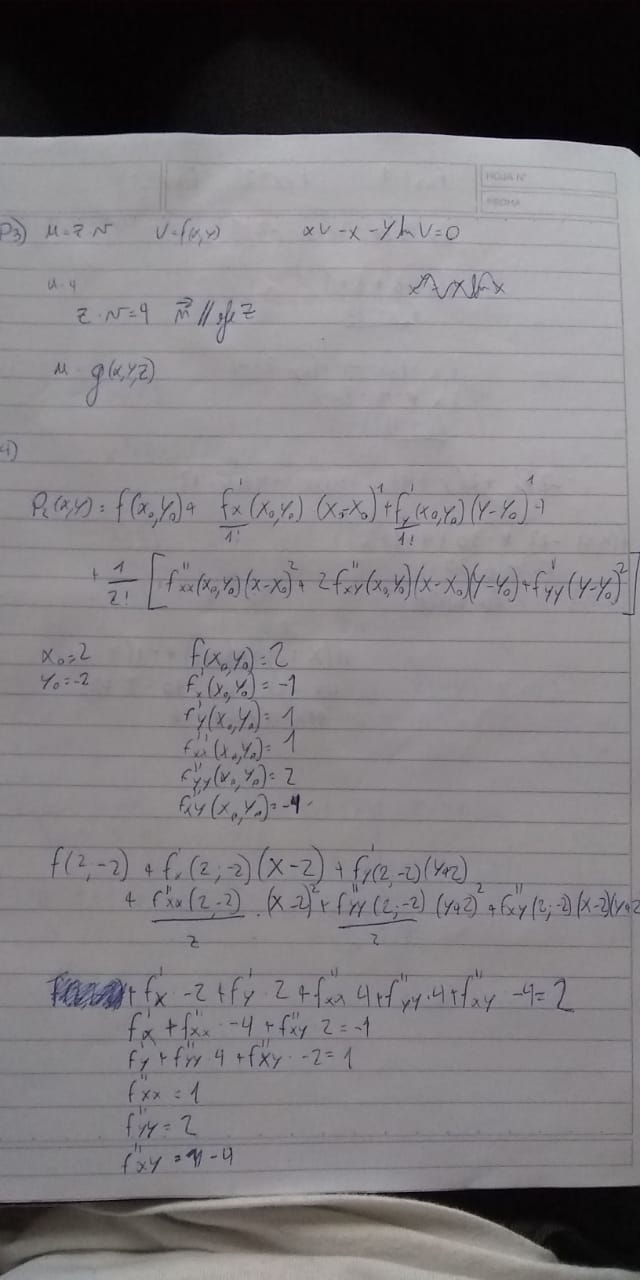 HOJA N°
FECHA
P3) u = z·v   V=f(x,y)   xV-x-y ln V=0
u=4
z·v=4   n⃗ // eje z
u   g(x,y,z)
4)
P₂(x,y) = f(x₀,y₀) + f'x/1! (x₀,y₀) (x-x₀)¹ + f'y/1! (x₀,y₀) (y-y₀)¹ +
+ 1/2! [f''xx(x₀,y₀)(x-x₀)² + 2f''xy(x₀,y₀)(x-x₀)(y-y₀)+f''yy(y-y₀)²]
x₀=2   f(x₀,y₀)=2
y₀=-2   f'x(x₀,y₀)=-1
f'y(x₀,y₀)= 1
f''xx(x₀,y₀)= 1
f''yy(x₀,y₀)= 2
fxy(x₀,y₀)=-4
f(2,-2) + f'x(2;-2)(x-2) + f'y(2,-2)(y+2)
+ f''xx(2,-2)/2 · (x-2)² + f''yy(2;-2)/2 (y+2)² + f''xy(2;-2)(x-2)(y+2
+ f'x · -2 + f'y · 2 + f''xx 4 + f''yy · 4 + f''xy -4 = 2
f'x + f''xx · -4 + f''xy 2 = -1
f'y + f''yy 4 + f''xy · -2 = 1
f''xx = 1
f''yy = 2
f''xy = -4